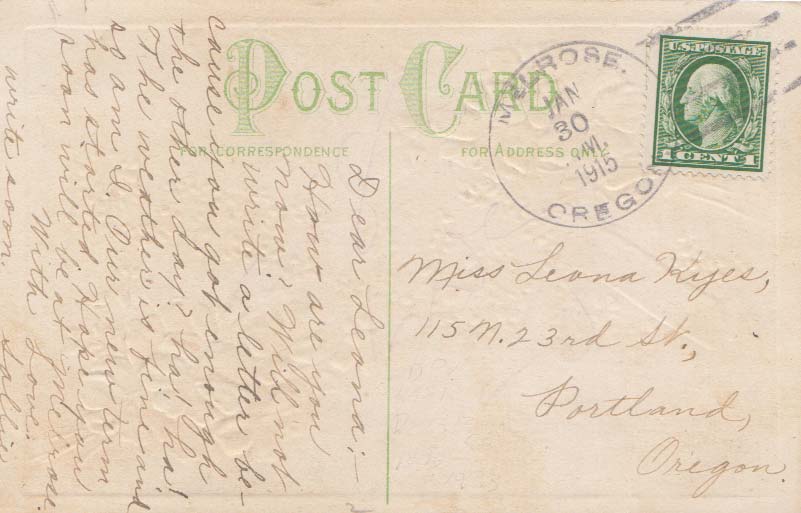 POST CARD
FOR CORRESPONDENCE
FOR ADDRESS ONLY
MELROSE,
JAN
30
M.
1915
OREGON
U.S. POSTAGE
1 CENT 1
Miss Leona Kyes,
115 N. 23rd St.,
Portland,
Oregon.
Dear Leona:-
How are you
now? Will not
write a letter be-
cause you got enough
the other day? ha! ha!
The weather is fine and
so am I. Our new term
has started. Hope you
soon will be at Melrose.
With Love
Sallie
write soon.